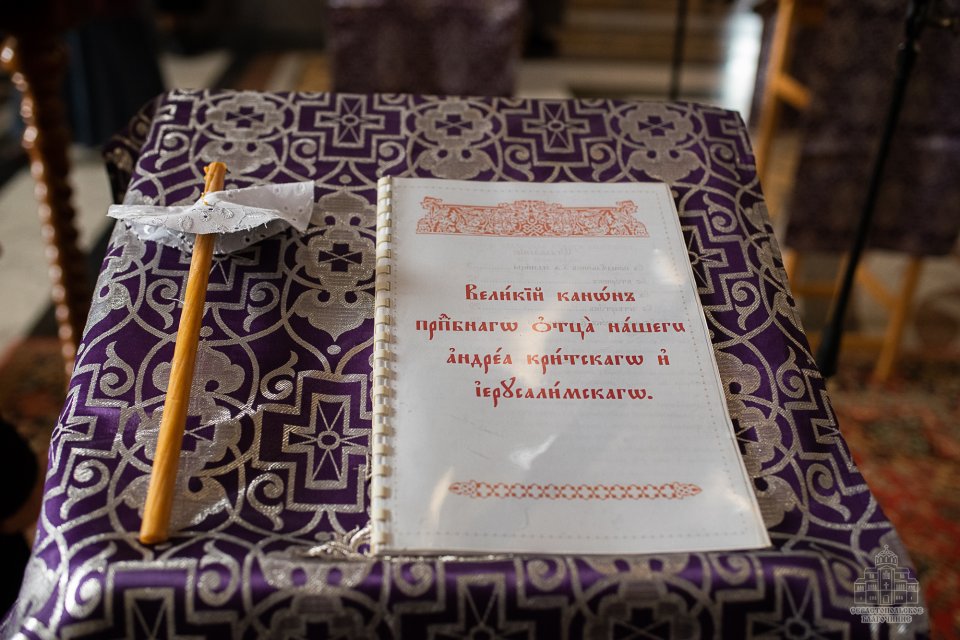 Вели́кїй канѡ́нъ
прпⷣбнагѡ ѻ҆тца̀ на́шегѡ
а҆ндре́а кри́тскагѡ и҆
і҆ерꙋсали́мскагѡ.
СЕВАСТОПОЛЬСКОЕ
БЛАГОЧИНИЕ